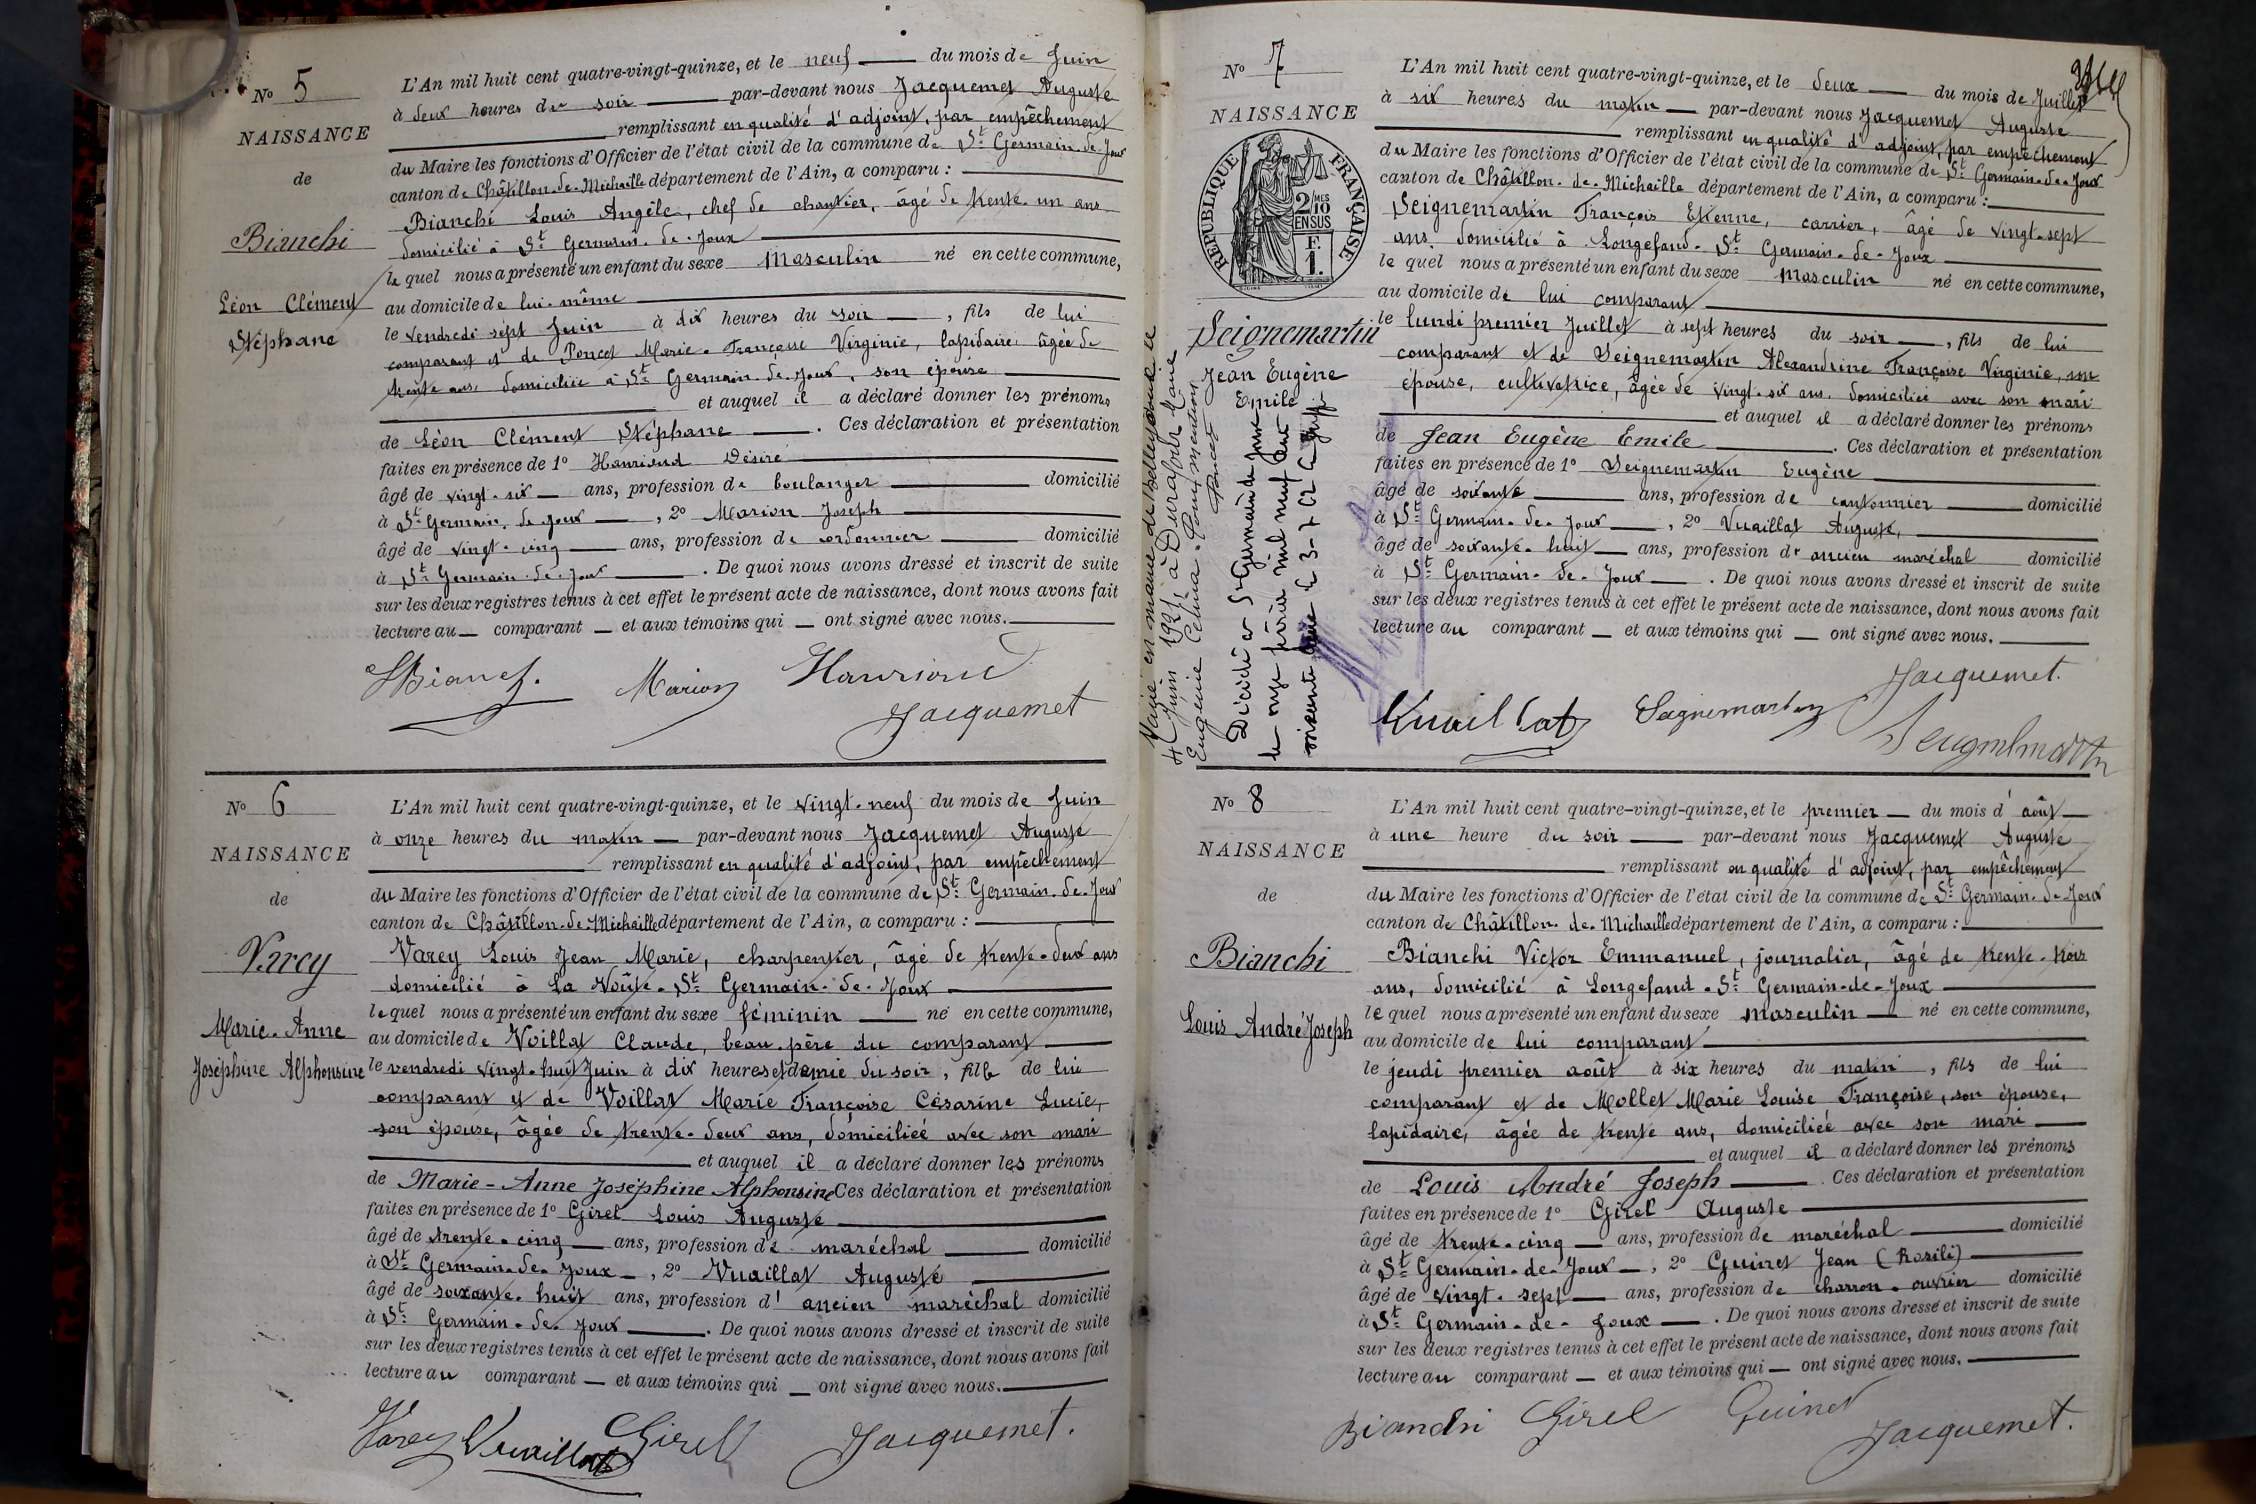 N° 5
NAISSANCE
de
Bianchi
Léon Clément
Stéphane
L'An mil huit cent quatre-vingt-quinze, et le neuf du mois de Juin
à deux heures du soir par-devant nous Jacquemet Auguste
remplissant en qualité d'adjoint, par empêchement
du Maire les fonctions d'Officier de l'état civil de la commune de St Germain-de-Joux
canton de Châtillon-de-Michaille département de l'Ain, a comparu :
Bianchi Louis Angèle, chef de chantier, âgé de trente-un ans
domicilié à St Germain-de-Joux
le quel nous a présenté un enfant du sexe Masculin né en cette commune,
au domicile de lui-même
le vendredi sept Juin à dix heures du soir, fils de lui
comparant et de Poncet Marie-Françoise Virginie, lapidaire âgée de
trente ans, domiciliée à St Germain-de-Joux, son épouse
et auquel il a déclaré donner les prénoms
de Léon Clément Stéphane. Ces déclaration et présentation
faites en présence de 1° Hanriond Désiré
âgé de vingt-six ans, profession de boulanger domicilié
à St Germain-de-Joux, 2° Marion Joseph
âgé de vingt-cinq ans, profession de cordonnier domicilié
à St Germain-de-Joux. De quoi nous avons dressé et inscrit de suite
sur les deux registres tenus à cet effet le présent acte de naissance, dont nous avons fait
lecture au comparant et aux témoins qui ont signé avec nous.
Marion Hanriond
Jacquemet
N° 6
NAISSANCE
de
Varey
Marie-Anne
Joséphine Alphonsine
L'An mil huit cent quatre-vingt-quinze, et le vingt-neuf du mois de Juin
à onze heures du matin par-devant nous Jacquemet Auguste
remplissant en qualité d'adjoint, par empêchement
du Maire les fonctions d'Officier de l'état civil de la commune de St Germain-de-Joux
canton de Châtillon-de-Michaille département de l'Ain, a comparu :
Varey Louis Jean Marie, charpentier, âgé de trente-deux ans
domicilié à La Voûte-St Germain-de-Joux
le quel nous a présenté un enfant du sexe féminin né en cette commune,
au domicile de Voillat Claude, beau-père du comparant
le vendredi vingt-huit Juin à dix heures et demie du soir, fille de lui
comparant et de Voillat Marie Françoise Césarine Lucie,
son épouse, âgée de trente-deux ans, domiciliée avec son mari
et auquel il a déclaré donner les prénoms
de Marie-Anne Joséphine Alphonsine Ces déclaration et présentation
faites en présence de 1° Girel Louis Auguste
âgé de trente-cinq ans, profession de maréchal domicilié
à St Germain-de-Joux, 2° Vuaillat Auguste
âgé de soixante-huit ans, profession d'ancien maréchal domicilié
à St Germain-de-Joux. De quoi nous avons dressé et inscrit de suite
sur les deux registres tenus à cet effet le présent acte de naissance, dont nous avons fait
lecture au comparant et aux témoins qui ont signé avec nous.
Varey Vuaillat Girel Jacquemet.
N° 7
NAISSANCE
RÉPUBLIQUE FRANÇAISE
2/10 MES
EN SUS
F.
1.
Seignemartin
Jean Eugène
Emile
Marié en mairie de Bellegarde le
4 Juin 1921, à Durafour Marie
Eugénie Célina. Pour mention
Poncet
Décédé à St Germain de Joux
le onze février mil neuf cent
L'An mil huit cent quatre-vingt-quinze, et le deux du mois de Juillet
à six heures du matin par-devant nous Jacquemet Auguste
remplissant en qualité d'adjoint, par empêchement
du Maire les fonctions d'Officier de l'état civil de la commune de St Germain-de-Joux
canton de Châtillon-de-Michaille département de l'Ain, a comparu :
Seignemartin François Etienne, carrier, âgé de vingt-sept
ans, domicilié à Longefand-St Germain-de-Joux
le quel nous a présenté un enfant du sexe masculin né en cette commune,
au domicile de lui comparant
le lundi premier Juillet à sept heures du soir, fils de lui
comparant et de Seignemartin Alexandrine Françoise Virginie, son
épouse, cultivatrice, âgée de vingt-six ans domiciliée avec son mari
et auquel il a déclaré donner les prénoms
de Jean Eugène Emile. Ces déclaration et présentation
faites en présence de 1° Seignemartin Eugène
âgé de soixante ans, profession de cantonnier domicilié
à St Germain-de-Joux, 2° Vuaillat Auguste,
âgé de soixante-huit ans, profession d' ancien maréchal domicilié
à St Germain-de-Joux. De quoi nous avons dressé et inscrit de suite
sur les deux registres tenus à cet effet le présent acte de naissance, dont nous avons fait
lecture au comparant et aux témoins qui ont signé avec nous.
Jacquemet.
Vuaillat Seignemartin
N° 8
NAISSANCE
de
Bianchi
Louis André Joseph
L'An mil huit cent quatre-vingt-quinze, et le premier du mois d'août
à une heure du soir par-devant nous Jacquemet Auguste
remplissant en qualité d'adjoint, par empêchement
du Maire les fonctions d'Officier de l'état civil de la commune de St Germain-de-Joux
canton de Châtillon-de-Michaille département de l'Ain, a comparu :
Bianchi Victor Emmanuel, journalier, âgé de trente-trois
ans, domicilié à Longefand-St Germain-de-Joux
le quel nous a présenté un enfant du sexe masculin né en cette commune,
au domicile de lui comparant
le jeudi premier août à six heures du matin, fils de lui
comparant et de Mollet Marie Louise Françoise, son épouse,
lapidaire, âgée de trente ans, domiciliée avec son mari
et auquel il a déclaré donner les prénoms
de Louis André Joseph. Ces déclaration et présentation
faites en présence de 1° Girel Auguste
âgé de trente-cinq ans, profession de maréchal domicilié
à St Germain-de-Joux, 2° Guinet Jean (Rosili)
âgé de vingt-sept ans, profession de charron-ouvrier domicilié
à St Germain-de-Joux. De quoi nous avons dressé et inscrit de suite
sur les deux registres tenus à cet effet le présent acte de naissance, dont nous avons fait
lecture au comparant et aux témoins qui ont signé avec nous.
Bianchi Girel Guinet
Jacquemet.